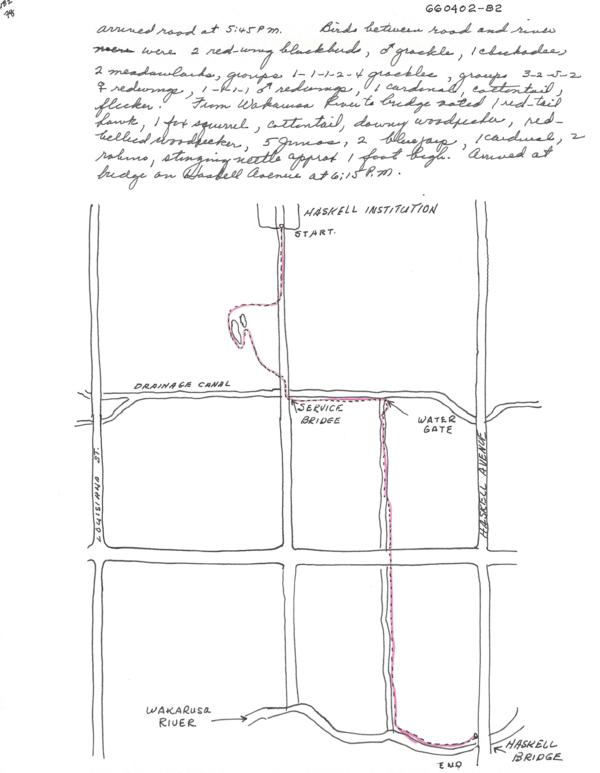 660402-B2
arrived road at 5:45 P.M. Birds between road and river
were 2 red-wing blackbirds, ♂ grackle, 1 chickadee,
2 meadowlarks, groups 1-1-1-2-4 grackles, groups 3-2-5-2
♀ redwings, 1-4-1, ♂ redwings, 1 cardinal, cottontail,
flicker. From Wakarusa River to bridge noted 1 red-tail
hawk, 1 fox squirrel, cottontail, downy woodpecker, red-
bellied woodpecker, 5 juncos, 2 bluejays, 1 cardinal, 2
robins, stinging nettle approx 1 foot high. Arrived at
bridge on Haskell Avenue at 6:15 P.M.
HASKELL INSTITUTION
START.
DRAINAGE CANAL
SERVICE
BRIDGE
WATER
GATE
LOUISIANA ST.
HASKELL AVENUE
WAKARUSA
RIVER
HASKELL
BRIDGE
END